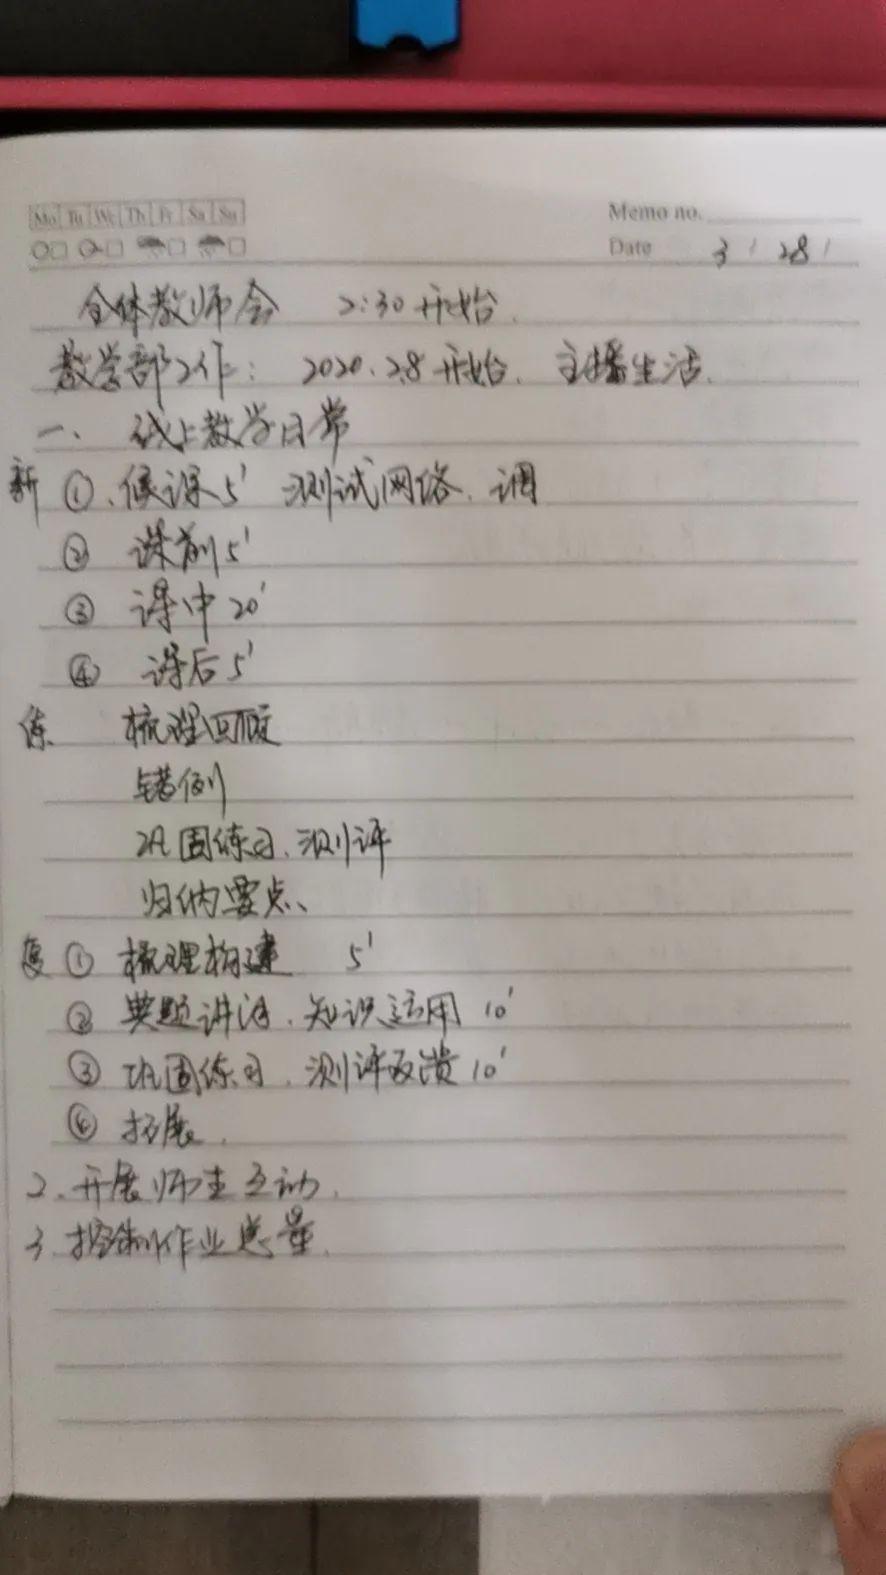 Mo Tu We Th Fr Sa Su
Memo no.
Date 3 / 28 /
全体教师会 2:30 开始.
教学部工作: 2020.2.8 开始. 主播生活.
一、线上教学日常
新 ①、候课 5' 测试网络、调
② 课前 5'
③ 课中 20'
④ 课后 5'
练 梳理回顾
错例
巩固练习、测评
归纳要点、
复 ① 梳理构建 5'
② 典题讲活、知识运用 10'
③ 巩固练习、测评反馈 10'
④ 拓展.
2、开展师生互动.
3、控制作业总量.